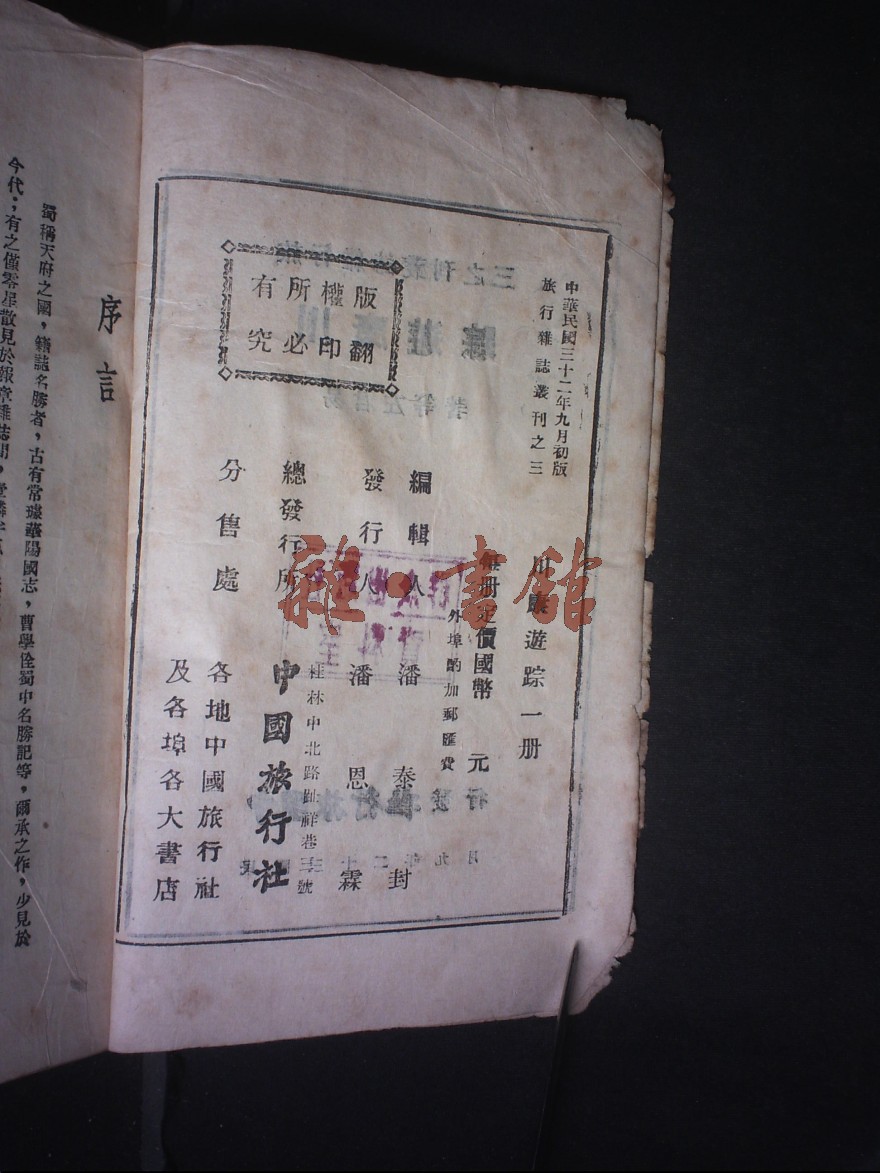 中華民國三十二年九月初版
旅行雜誌叢刊之三
川康遊踪一册
每册定價國幣 元
外埠酌加郵匯費
編輯人 潘泰封
發行人 潘恩霖
總發行所 中國旅行社
桂林中北路趾祥巷三號
分售處 各地中國旅行社
及各埠各大書店
版權所有
翻印必究
雜·書館
序言
蜀稱天府之國，籍誌名勝者，古有常璩華陽國志，曹學佺蜀中名勝記等，爾承之作，少見於
今代；有之僅零星散見於報章雜誌間，